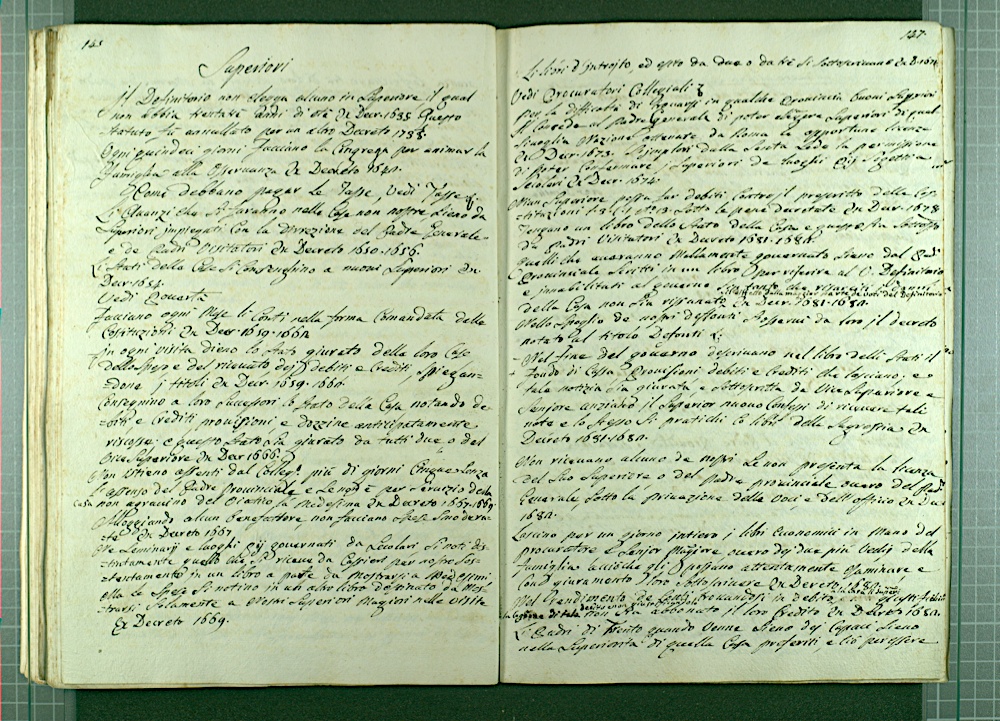 145
Superiori
Il Definitorio non elegga alcuno in Superiore il qual
non abbia trentatre anni di età Ex Decr. 1635. Questo
statuto fu annullato per un altro Decreto 1738.
Ogni quindeci giorni facciano la Congrega per animar la
Famiglia alla Osservanza Ex Decreto 1641.
Come debbano pagar le Tasse, Vedi Tasse
Gl'Avanzi che si faranno nelle Case non nostre sieno da
Superiori impiegati con la direzione del Padre Generale
o de Padri Visitatori Ex Decreto 1650. 1656.
Gli Stati delle Case si consegnino a nuovi Superiori Ex
Decr. 1654.
Vedi
Facciano ogni Mese li Conti nella forma Comandata dalle
Costituzioni Ex Decr. 1659. 1660.
In ogni visita dieno lo Stato giurato della loro Casa
delle spese e del ricevuto dej debiti e Crediti, spiegan-
done i titoli Ex Decr. 1659. 1660.
Consegnino a loro Successori lo Stato della Casa notando de-
biti e Crediti provisioni e dozzine anticipatamente
riscosse, e questo Stato sia giurato da tutti due o dal
Vice Superiore Ex Decr. 1666.
Non stieno assenti dal Colleg.º più di giorni Cinque senza
l'assenso del Padre Provinciale e lungi e per servizio della
Casa non agravino del Viatico la medesima Ex Decreto 1667. 1669.
Alloggiando alcun benefattore non facciano spese smodera-
te Ex Decreto 1667.
Ne Seminarij e luoghi pij governati da Secolari si noti dis-
tintamente quello che si riceve da Cassieri per nostro sos-
tentamento in un libro a parte da mostrarsi a Medesimi,
ma le spese si notino in un altro libro destinato da mos-
trarsi solamente a Nostri Superiori Maggiori nelle visite
Ex Decreto 1669.
147.
Li libri d'introjto, ed esito da due o da tre si sottoscrivano Ex D. 1671
Vedi Procuratori Collegiali
per la difficoltà di trovarsi in qualche Provincia buoni Superiori
si Concede al Padre Generale di poter elegere Superiori di qual
sivoglia Nazione ottenute da Roma le opportune licenze
Ex Decr. 1673. S'impetri dalla Santa Sede la permissione
di poter Confermare i Superiori de luoghi pij sogetti a
Secolari Ex Decr. 1674.
Niun Superiore possa far debiti Contro il prescritto delle Cos-
tituzioni sotto la pena decretata Ex Decr. 1678
Tengano un libro dello Stato della Casa e questo sia sottoscritto
da Padri Visitatori Ex Decreto 1681. 1682.
Quelli che avranno Malamente governato sieno dal Padre
Provinciale scritti in un libro per riferire al V. Definitorio
e innabilitati al governo
della Casa non sia risparata Ex Decr. 1681. 1682.
Nello spoglio de nostri defonti s'osservi da loro il decreto
notato al titolo Defonti
Nel fine del governo descrivano nel libro delli Stati il
fondo di Cassa Provisioni debiti e Crediti che lasciano: e
tale notizia sia giurata, e sottoscritta da Vice Superiore e
Seniore anziano il Superior nuovo Confessi di ricevere tali
note e lo stesso si pratichi Co libri della Sagrestia Ex
Decreto 1681. 1682.
Non ricevano alcuno de nostri se non presenta la licenza
del suo Superiore o del padre provinciale overo del Padre
Generale sotto la privazione della Voce e dell'officio Ex Decr
1682.
Lascino per un giorno intiero i libri Economici in Mano del
procuratore e Senior Maggiore overo dej due più Vechj della
Famiglia acciò che gli possano attentamente esaminare e
Con giuramento loro sottoscrivere Ex Decreto 1682.
Nel Rendimento de Conti trovandosi in debito
non sia abbonato il loro Credito Ex Decreto 1682.
I Padri di Trento quando venne sieno dej Capaci sieno
nella Superiorità di quella Casa preferiti, e ciò per essere